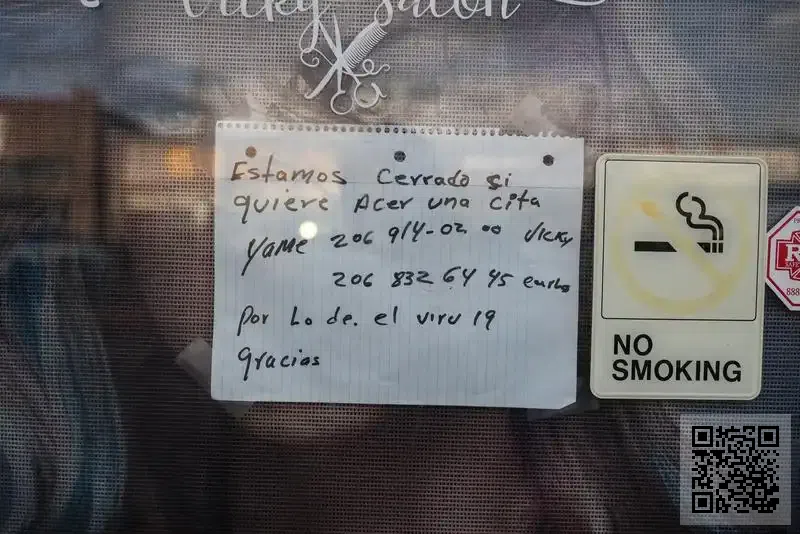 Vicky Salon
Estamos Cerrado si
quiere Acer una cita
Yame 206 914-02 00 Vicky
206 832 64 45
por Lo de. el viru 19
gracias
NO
SMOKING